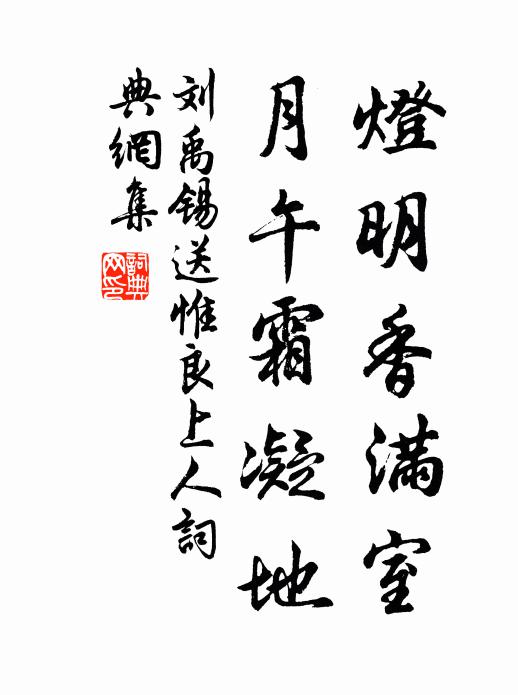 燈明香滿室
月午霜凝地
刘禹锡送惟良上人詞
典網集
詞典網印